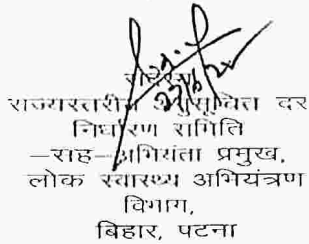 सदस्य
राज्यस्तरीय अनुसूचित दर
निर्धारण समिति
–सह–अभियंता प्रमुख,
लोक स्वास्थ्य अभियंत्रण
विभाग,
बिहार, पटना